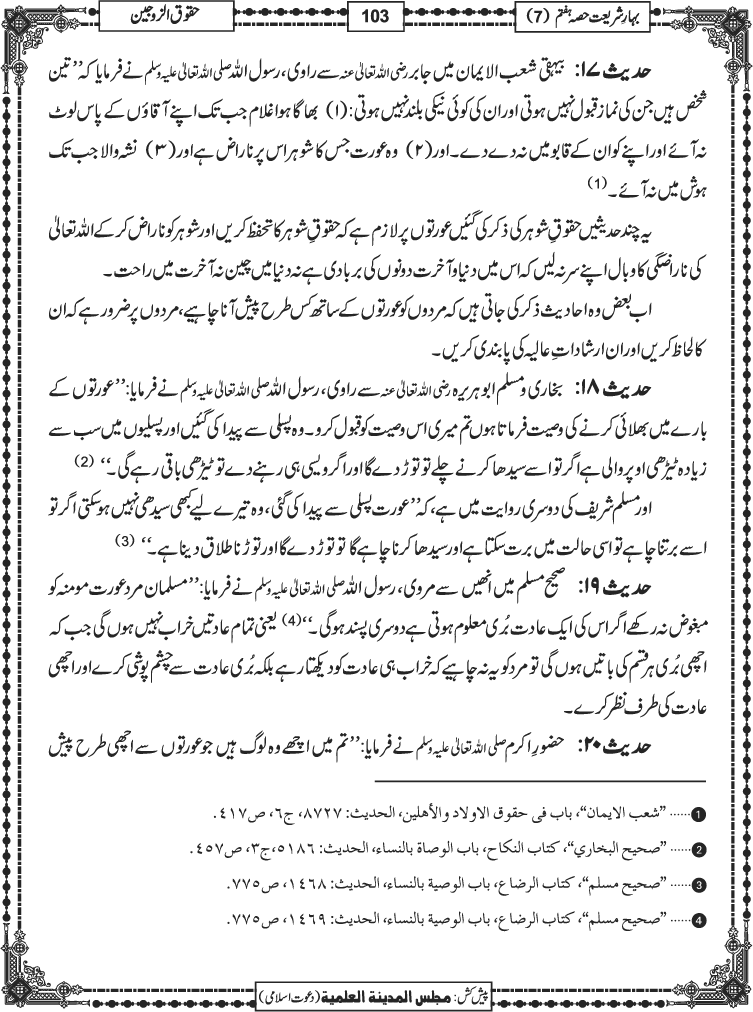 بہارِ شریعت حصہ ہفتم (7)
103
حقوق الزوجین
حدیث ۱۷: بیہقی شعب الایمان میں جابر رضی اللہ تعالیٰ عنہ سے راوی، رسول اللہ صلی اللہ تعالیٰ علیہ وسلم نے فرمایا کہ ’’تین
شخص ہیں جن کی نماز قبول نہیں ہوتی اور ان کی کوئی نیکی بلند نہیں ہوتی: (۱) بھاگا ہوا غلام جب تک اپنے آقاؤں کے پاس لوٹ
نہ آئے اور اپنے کو ان کے قابو میں نہ دے دے۔ اور (۲) وہ عورت جس کا شوہر اس پر ناراض ہے اور (۳) نشہ والا جب تک
ہوش میں نہ آئے۔ (1)
یہ چند حدیثیں حقوقِ شوہر کی ذکر کی گئیں عورتوں پر لازم ہے کہ حقوقِ شوہر کا تحفظ کریں اور شوہر کو ناراض کر کے اللہ تعالیٰ
کی ناراضگی کا وبال اپنے سر نہ لیں کہ اس میں دنیا و آخرت دونوں کی بربادی ہے نہ دنیا میں چین نہ آخرت میں راحت۔
اب بعض وہ احادیث ذکر کی جاتی ہیں کہ مردوں کو عورتوں کے ساتھ کس طرح پیش آنا چاہیے، مردوں پر ضرور ہے کہ ان
کا لحاظ کریں اور ان ارشاداتِ عالیہ کی پابندی کریں۔
حدیث ۱۸: بخاری و مسلم ابوہریرہ رضی اللہ تعالیٰ عنہ سے راوی، رسول اللہ صلی اللہ تعالیٰ علیہ وسلم نے فرمایا: ’’عورتوں کے
بارے میں بھلائی کرنے کی وصیت فرماتا ہوں تم میری اس وصیت کو قبول کرو۔ وہ پسلی سے پیدا کی گئیں اور پسلیوں میں سب سے
زیادہ ٹیڑھی اوپر والی ہے اگر تو اسے سیدھا کرنے چلے تو توڑ دے گا اور اگر ویسی ہی رہنے دے تو ٹیڑھی باقی رہے گی۔‘‘ (2)
اور مسلم شریف کی دوسری روایت میں ہے، کہ ’’عورت پسلی سے پیدا کی گئی، وہ تیرے لیے کبھی سیدھی نہیں ہوسکتی اگر تو
اسے برتنا چاہے تو اسی حالت میں برت سکتا ہے اور سیدھا کرنا چاہے گا تو توڑ دے گا اور توڑنا طلاق دینا ہے۔‘‘ (3)
حدیث ۱۹: صحیح مسلم میں انھیں سے مروی، رسول اللہ صلی اللہ تعالیٰ علیہ وسلم نے فرمایا: ’’مسلمان مرد عورت مومنہ کو
مبغوض نہ رکھے اگر اس کی ایک عادت بُری معلوم ہوتی ہے دوسری پسند ہوگی۔‘‘ (4) یعنی تمام عادتیں خراب نہیں ہوں گی جب کہ
اچھی بُری ہر قسم کی باتیں ہوں گی تو مرد کو یہ نہ چاہیے کہ خراب ہی عادت کو دیکھتا رہے بلکہ بُری عادت سے چشم پوشی کرے اور اچھی
عادت کی طرف نظر کرے۔
حدیث ۲۰: حضورِ اکرم صلی اللہ تعالیٰ علیہ وسلم نے فرمایا: ’’تم میں اچھے وہ لوگ ہیں جو عورتوں سے اچھی طرح پیش
❶ ...... ”شعب الایمان“، باب فی حقوق الاولاد والأهلین، الحدیث: ٨٧٢٧، ج٦، ص٤١٧.
❷ ...... ”صحیح البخاري“، کتاب النکاح، باب الوصاة بالنساء، الحدیث: ٥١٨٦، ج٣، ص٤٥٧.
❸ ...... ”صحیح مسلم“، کتاب الرضاع، باب الوصیة بالنساء، الحدیث: ١٤٦٨، ص٧٧٥.
❹ ...... ”صحیح مسلم“، کتاب الرضاع، باب الوصیة بالنساء، الحدیث: ١٤٦٩، ص٧٧٥.
پیش کش: مجلس المدینة العلمیة (دعوت اسلامی)